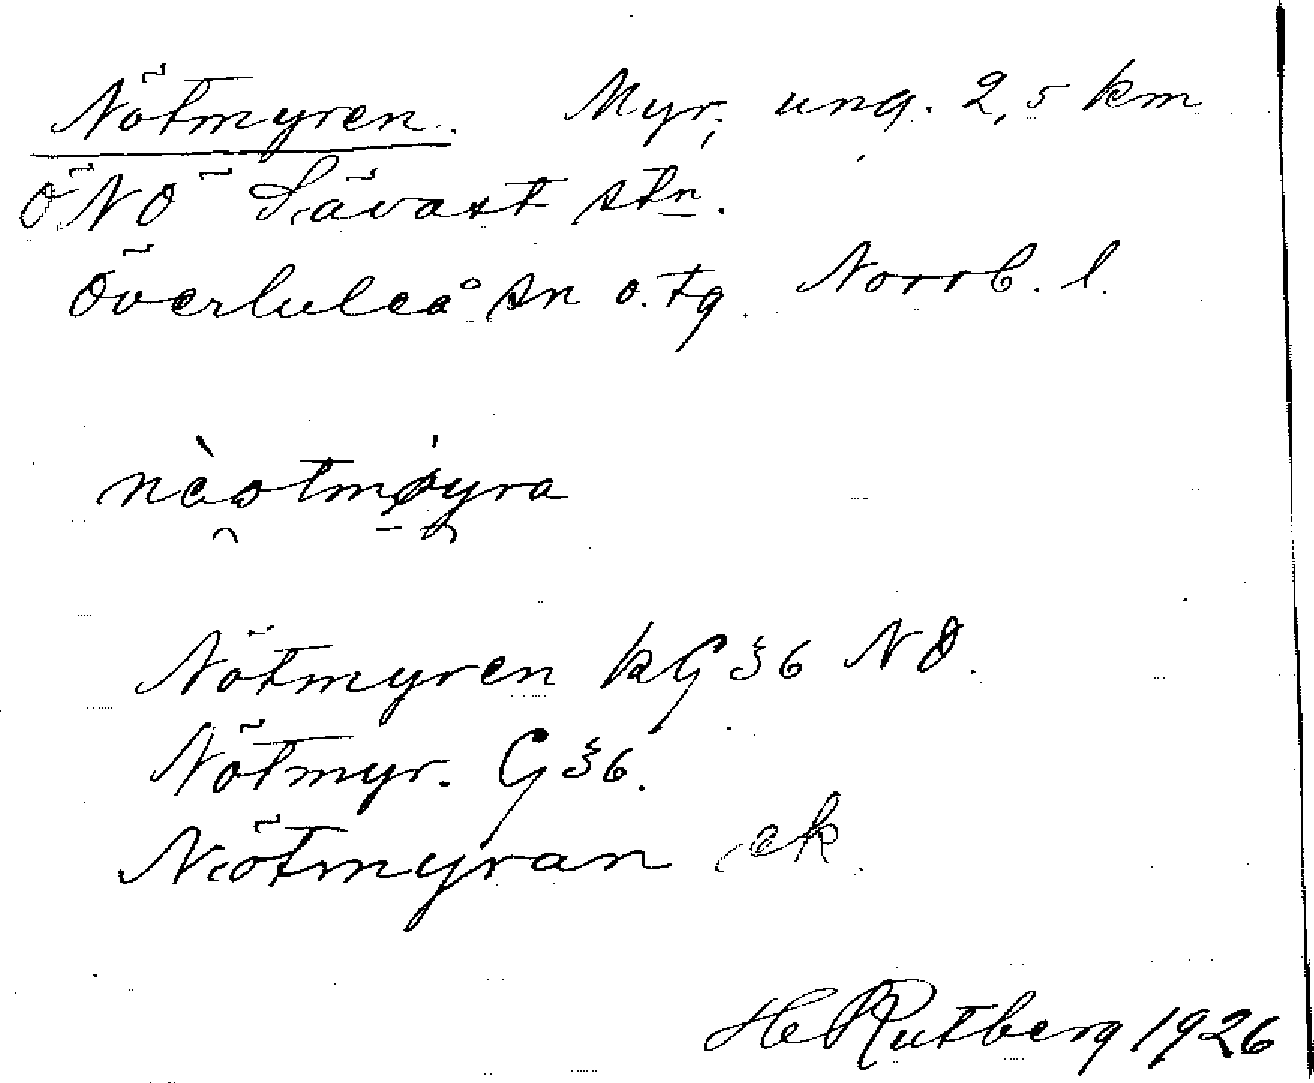 Nötmyren. Myr, ung. 2,5 km
ÖNÖ Sävast stn.
Överluleå sn o. tg. Norrb. l.
nòotmøyra
Nötmyren kG 36 NÖ.
Nötmyr. G 36.
Nötmyran ek.
H Rutberg 1926